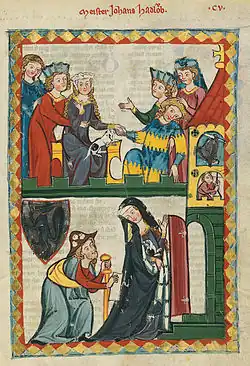 Meister Johans Hadlob.
·CV·